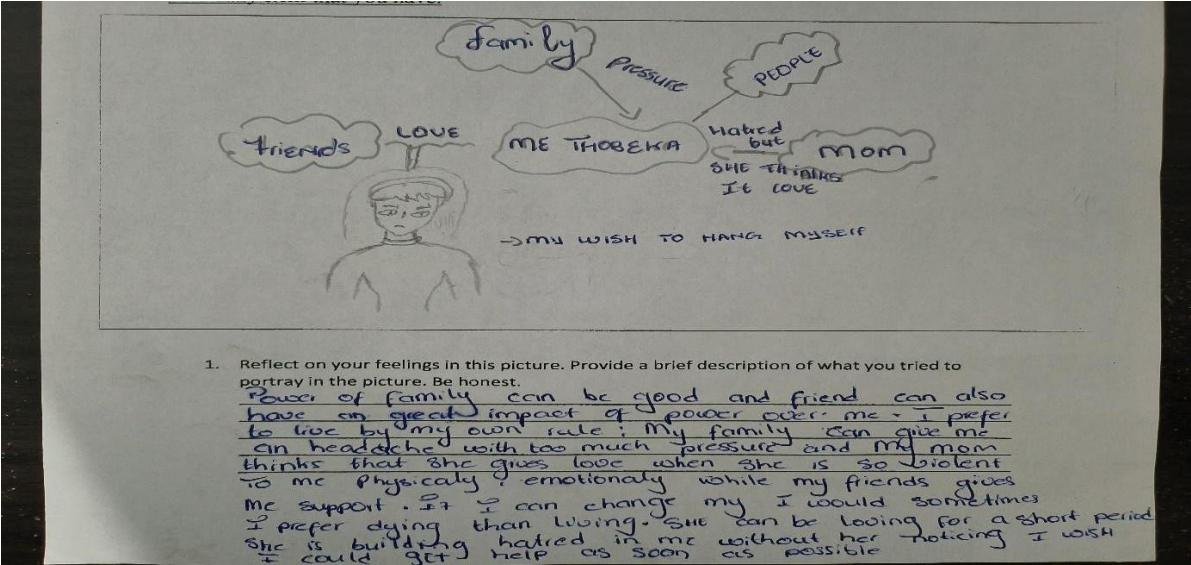 family
Pressure
PEOPLE
friends
LOVE
ME THOBEKA
Hatred
but
mom
SHE THINKS
It LOVE
→ MY WISH TO HANG MYSELF
1. Reflect on your feelings in this picture. Provide a brief description of what you tried to
portray in the picture. Be honest.
Power of family can be good and friend can also
have an great impact of power over me. I prefer
to live by my own rule; My family can give me
an headache with too much pressure and my mom
thinks that she gives love when she is so violent
To me Physicaly, emotionaly while my friends gives
me support. If I can change my I would sometimes
I prefer dying than living. SHE can be loving for a short period
She is building hatred in me without her noticing I WISH
I could get help as soon as possible